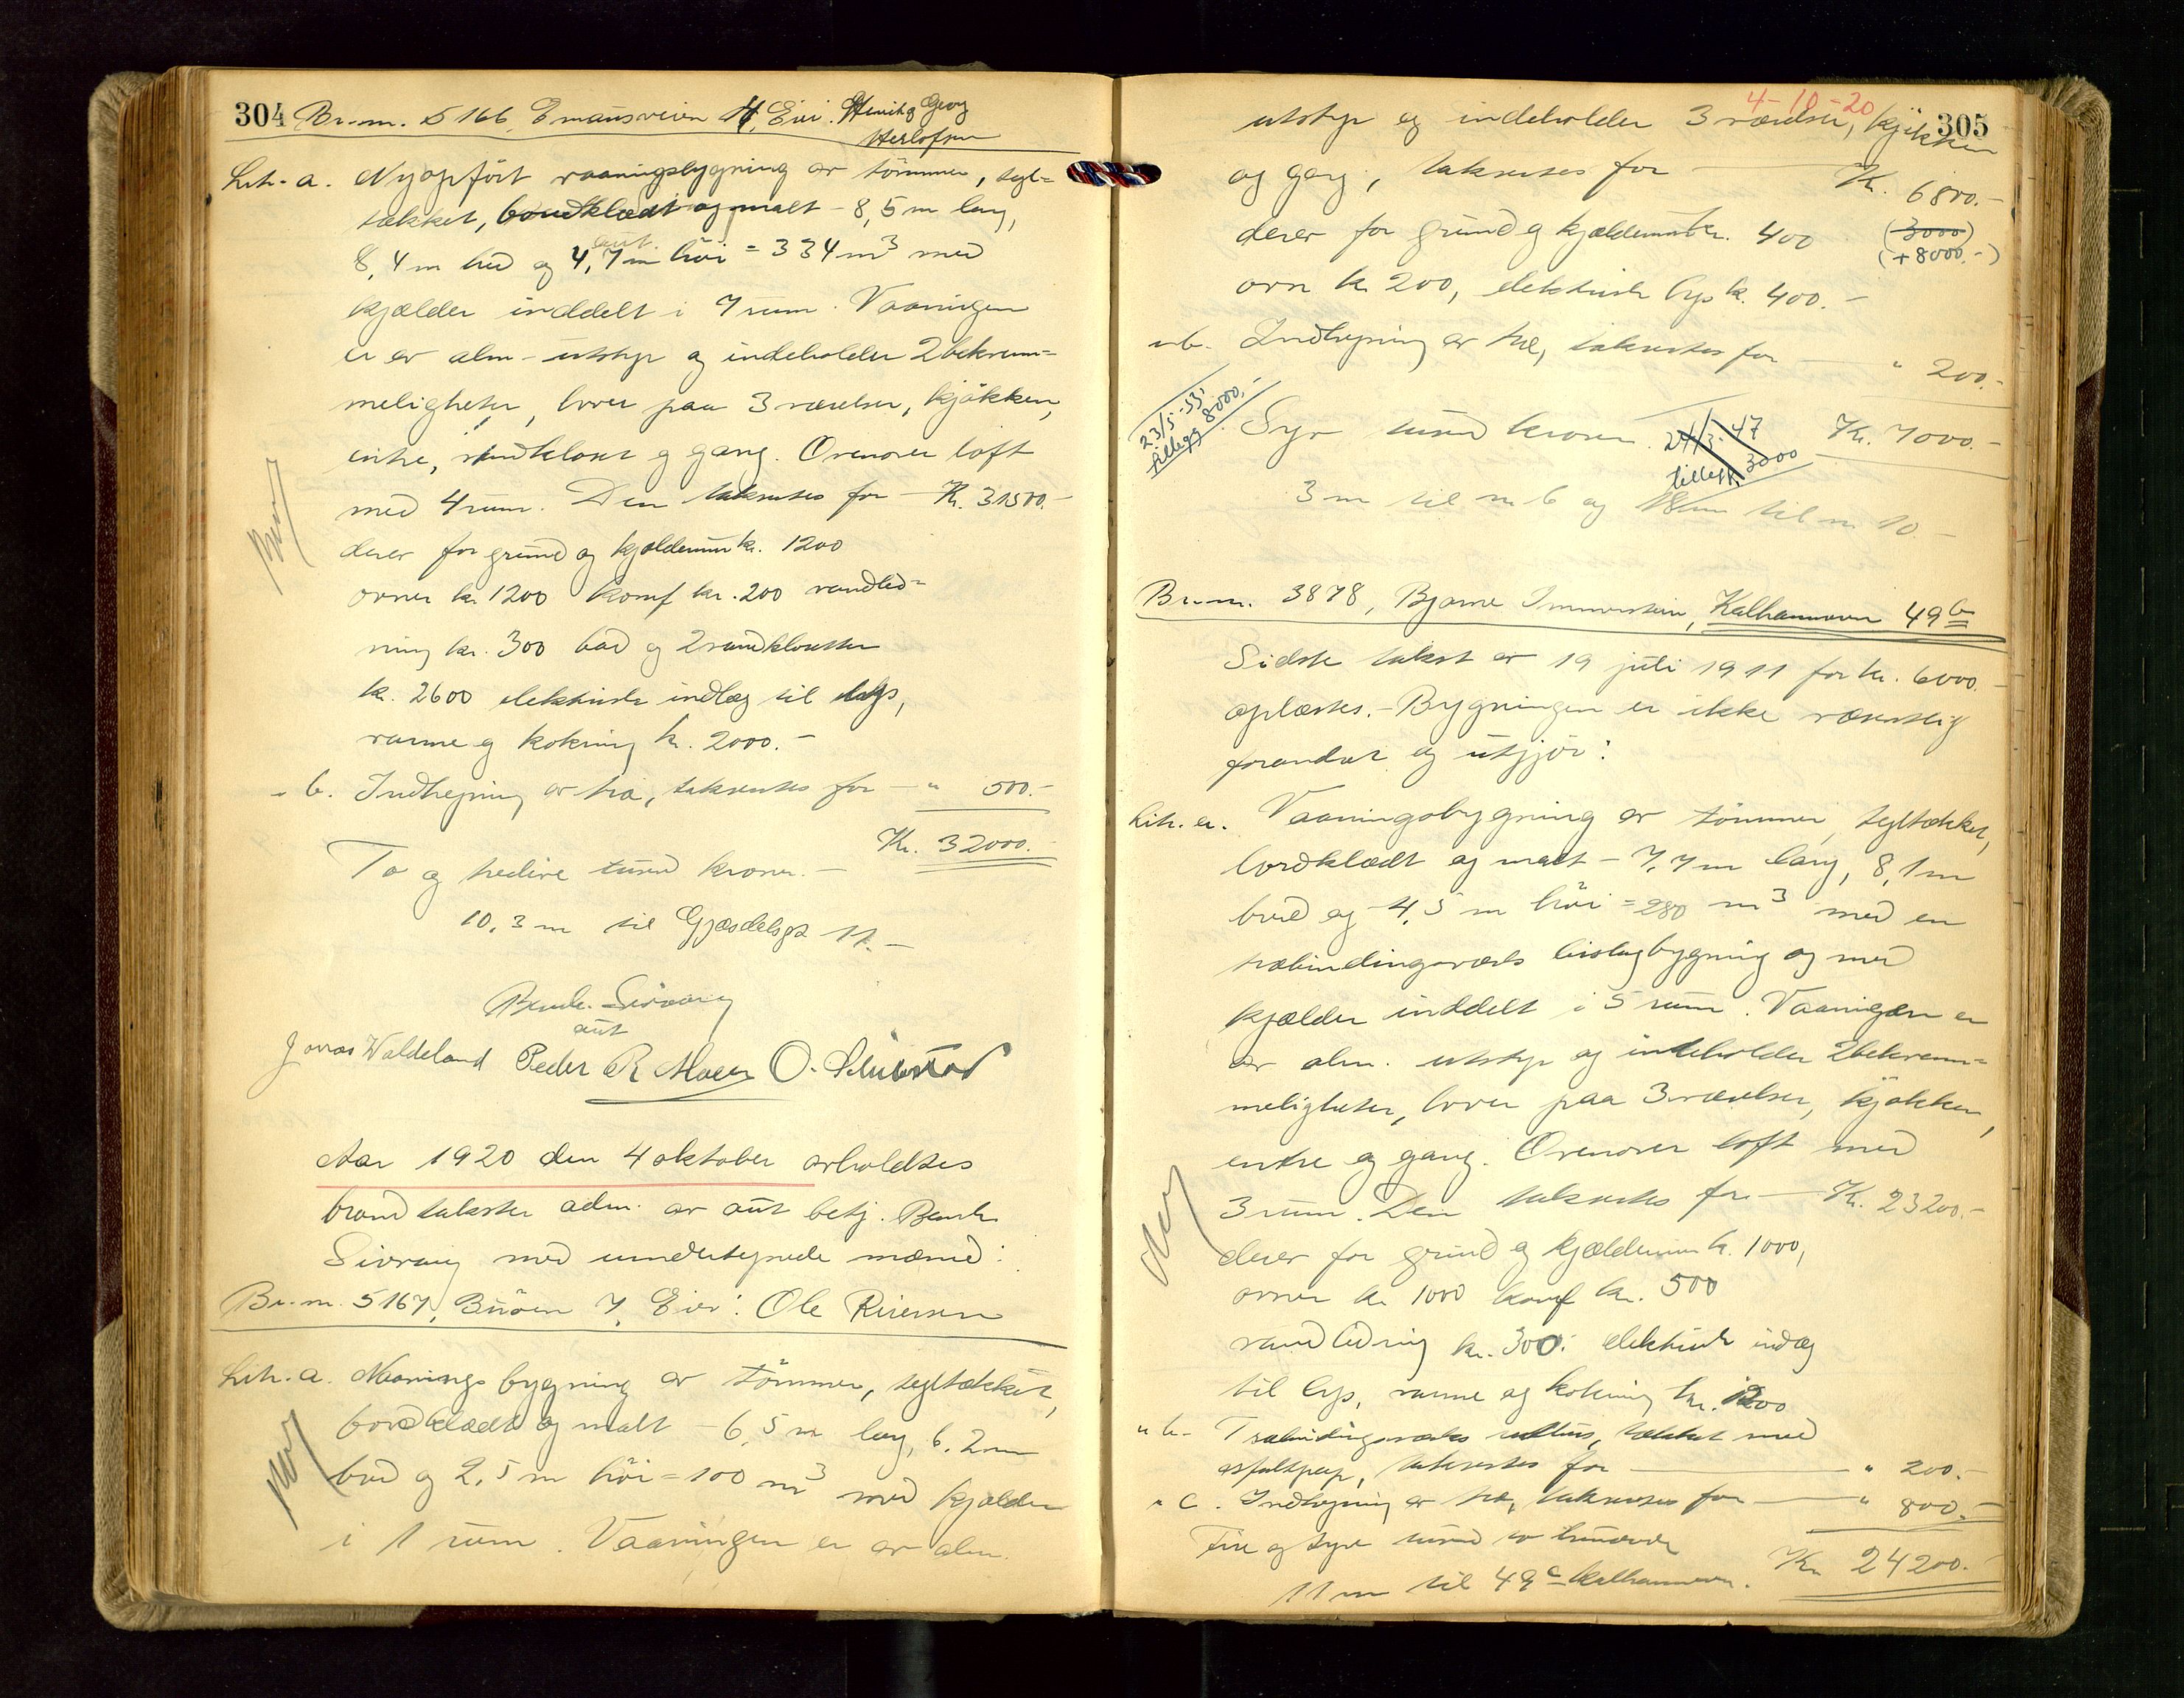 304 Br.-nr. 5166, Emausveien 4, Eier: Henrik Georg
Herlofsen
Litr. a. Nyopfört vaaningsbygning av tömmer, tegl=
tækket, bordklædt og malt - 8,5 m lang,
aut.
8,4 m bred og 4,7 m höi = 334 m³ med
kjælder inddelt i 7 rum. Vaaningen
er av alm. utstyr og indeholder 2 bekvem=
meligheter, hver paa 3 værelser, kjökken,
entre, vandkloset og gang. Ovenover loft
med 4 rum. Den takseres for - Kr. 31500.-
derav for grund og kjældermur kr. 1200
ovner kr. 1200 komf kr. 200 vandled=
ning kr. 300 bad og 2 vandklosetter
kr. 2600 elektrisk indlæg til lys,
varme og kokning kr. 2000.-
" b. Indhegning av træ, takseres for - " 500.-
Kr. 32000.-
To og tredive tusend kroner.-
10,3 m til Gjesdalsgt 11.-
Bernh. Sivvaag
aut
Jonas Waldeland Peder R Moen O.
Aar 1920 den 4 oktober avholdtes
brandtakster adm. av aut betj. Bernh.
Sivvaag med undertegnede mænd:
Br.-nr. 5167, Buöen 7, Eier: Ole Reiersen
Litr. a. Vaaningsbygning av tömmer, tegltækket,
bordklædt og malt - 6,5 m lang, 6,2 m
bred og 2,5 m höi = 100 m³ med kjælder
i 1 rum. Vaaningen er av alm.
4-10-20
305
utstyr og indeholder 3 værelser, kjökken
og gang, takseres for - Kr. 6800.-
derav for grund og kjældermur kr. 400 (3000)
(+8000.-)
ovn kr 200, elektrisk lys kr. 400.-
" b. Indhegning av træ, takseres for - " 200.-
23/5-53.
tillegg 8000.-
Syv tusend kroner. Kr. 7000.-
24/3-47
tillegg 3000
3 m til nr 6 og 18 m til nr 10.-
Br.-nr. 3878, Bjarne Immerstein, Kalhammeren 49 b
Sidste takst av 19 juli 1911 for kr. 6000.-
oplæstes.- Bygningen er ikke væsentlig
forandret og utgjör:
Litr. a. Vaaningsbygning av tömmer, tegltækket,
bordklædt og malt - 7,7 m lang, 8,1 m
bred og 4,5 m höi = 280 m³ med en
træbindingsværks bislagbygning og med
kjælder inddelt i 5 rum. Vaaningen er
av alm. utstyr og indeholder 2 bekvem=
meligheter, hver paa 3 værelser, kjøkken,
entre og gang. Ovenover loft med
3 rum. Den takseres for - Kr. 23200.-
derav for grund og kjældermur kr. 1000,
ovner kr 1000 komf kr. 500
vandledning kr. 300. elektrisk indlæg
til lys, varme og kokning kr. 1200
" b. Træbindingsverks uthus, tækket med
asfaltpap, takseres for - " 200.-
" c. Indhegning av træ, takseres for - " 800.-
Fire og tyve tusend to hundrede Kr. 24200.-
11 m til 49 c Kalhammeren.